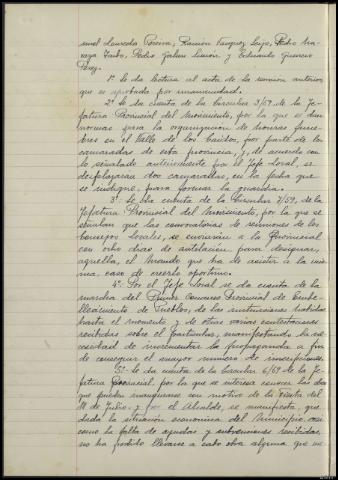 Manuel Pereira, Ramón Vazquez Seijo, Pedro
Pedro y Eduardo Guerrero
Perez.
1º Se da lectura al acta de la reunion anterior,
que es aprobada por unanimidad.
2º Se da cuenta de la Circular 3/59 de la Je-
fatura Provincial del Movimiento, por la que se dan
normas para la organizacion de honras fune-
bres en el Valle de los Caidos, por parte de los
camaradas de esta provincia, y, de acuerdo con
lo señalado anteriormente por el Jefe Local, se
desplazaran dos camaradas, en la fecha que
se indique, para formar la guardia.
3º Se da cuenta de la Circular 7/59, de la
Jefatura Provincial del Movimiento, por la que se
señalan que las convocatorias de reuniones de los
Consejos Locales, se enviarán a la Provincial
con ocho dias de antelación, para designar,
aquella, el Mando que ha de asistir a la mis-
ma, caso de creerlo oportuno.
4º Por el Jefe Local se da cuenta de la
marcha del Primer Concurso Provincial de Embe-
llecimiento de Pueblos, de las habidas
hasta el momento y de otras varias contestaciones
recibidas sobre el particular, manifestando, la ne-
cesidad de incrementar la propaganda a fin
de conseguir el mayor numero de inscripciones.
5º Se da cuenta de la Circular 6/59 de la Je-
fatura Provincial, por la que se interesa conocer las obras
que puedan inaugurarse con motivo de la Fiesta del
18 de Julio, y por el Alcalde, se manifiesta, que
dada la situación economica del Municipio, así
como la falta de ayudas y subvenciones recibidas,
no ha podido llevarse a cabo obra alguna que me-